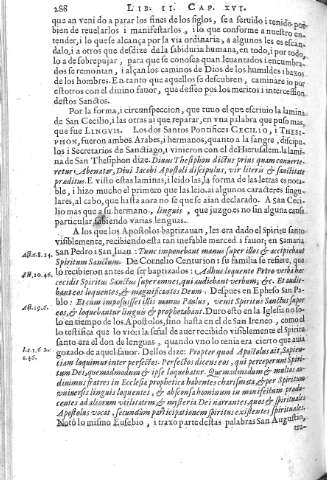 288 LIB. II. CAP. XVI.
que an venido a parar los fines de los siglos, se a servido i tenido por
bien de revelarlos i manifestarlos, i lo que conforme a nuestro en-
tender, i lo que se alcança por via ordinaria, a algunos les es escán-
dalo, i a otros que desdize de la sabiduria humana, en todo, i por todo,
lo a de sobrepujar, para que si estos quan levantados i encumbra-
dos se remontan, i alçan los caminos de Dios de los humildes i baxos
de los hombres. En tanto que aquellos se descubren, caminare io por
estotros con el divino favor, que desseo por los meritos i intercession
destos Santos.
Por la forma, i circunspeccion, que tuvo el que escrivio la lamina
de San Cecilio, i las otras ai que reparar, en vna palabra que puso mas,
que fue LINGVIS. Los dos Santos Pontifices CECILIO, i THESI-
PHON, fueron ambos Arabes, i hermanos, quanto a la sangre, discipu-
los i Secretarios de Sanctiago, i vinieron con el de Hierusalem. la lami-
na de San Thesiphon dize. Divus Thesiphon dictus prius quam converte-
retur, Abenatar, Divi Jacobi Apostoli discipulus, vir litteris & sanctitate
praeditus. E visto estas laminas, i leido las, i la forma de las letras es nota-
ble, i hizo mucho el primero que las leio, ai algunos caracteres singu-
lares, al cabo, que hasta aora no se que se aian declarado. A San Ceci-
lio mas que a su hermano, linguis, que juzgo es no sin alguna causa
particular, sabiendo varias lenguas.
A los que los Apostoles baptizauan, les era dado el Spiritu santo
visiblemente, recibiendo esta tan inefable merced a favor; en Samaria
San Pedro i San Juan: Tunc imponebant manus super illos & accipiebant
Spiritum Sanctum. De Cornelio Centurion i su familia se refiere, que
lo recibieron antes de ser baptizados: Adhuc loquente Petro verba haec
cecidit Spiritus Sanctus super omnes, qui audiebant verbum, &c. Et audie-
bant eos loquentes, & magnificantes Deum. Despues en Epheso San Pa-
blo: Et cum imposuisset illis manus Paulus, venit Spiritus Sanctus super
eos, & loquebantur linguis & prophetabant. Duro esto en la Iglesia no so-
lo en tiempo de los Apostoles, sino hasta en el de San Ireneo, como el
lo testifica que lo vio: i la señal de aver recibido visiblemente el Spiritu
santo era el don de lenguas, quando vno lo tenia era cierto que avia
gozado de aquel favor. Dellos dize: Propter quod Apostolus ait, Sapien-
tiam loquimur inter perfectos. Perfectos dicens eos, qui perceperunt Spiri-
tum Dei, quemadmodum & ipse loquebatur. Quemadmodum & multos au-
divimus fratres in Ecclesia prophetica habentes charismata, & per Spiritum
universis linguis loquentes, & absconsa hominum in manifestum produ-
centes ad absorum utilitatem & mysteria Dei narrantes, quos & spirituales
Apostolus vocat, secundum participationem spiritus existentes spirituales.
Notó lo mismo Eusebio, i traxo parte destas palabras San Augustin,
Act. 8. 14.
Act. 10. 46.
Act. 19. 6.